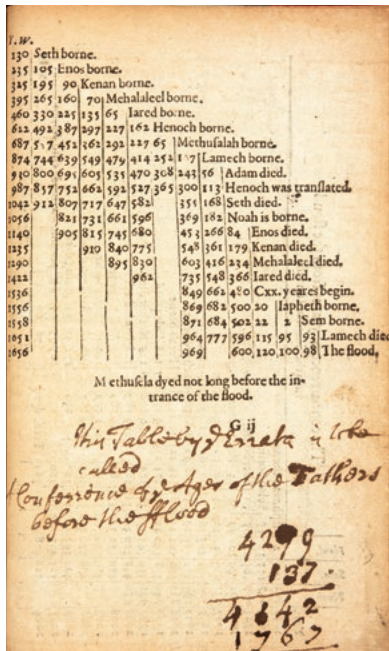 Y.W.
130 Seth borne.
235 105 Enos borne.
325 195 90 Kenan borne.
395 265 160 70 Mehalaleel borne.
460 330 225 135 65 Iared borne.
612 492 387 297 227 162 Henoch borne.
687 557 452 362 292 227 65 Methusalah borne.
874 744 639 549 479 414 252 187 Lamech borne.
930 800 695 605 535 470 308 243 56 Adam died.
987 857 752 662 592 527 365 300 113 Henoch was translated.
1042 912 807 717 647 582 355 168 Seth died.
1056 821 731 661 596 369 182 Noah is borne.
1140 905 815 745 680 453 266 84 Enos died.
1235 910 840 775 548 361 179 Kenan died.
1290 895 830 603 416 234 Mehalaleel died.
1422 962 735 548 366 Iared died.
1536 849 662 480 Cxx. yeares begin.
1556 869 682 500 20 Iapheth borne.
1558 871 684 502 22 2 Sem borne.
1651 964 777 596 115 95 93 Lamech died
1656 969 600 120 100 98 The flood.
Methusela dyed not long before the in-
trance of the flood.
G ij
this Table by ye Errata is to be
called
Conference of ye Ages of the Fathers
before the fflood
4299
137
4342
1767